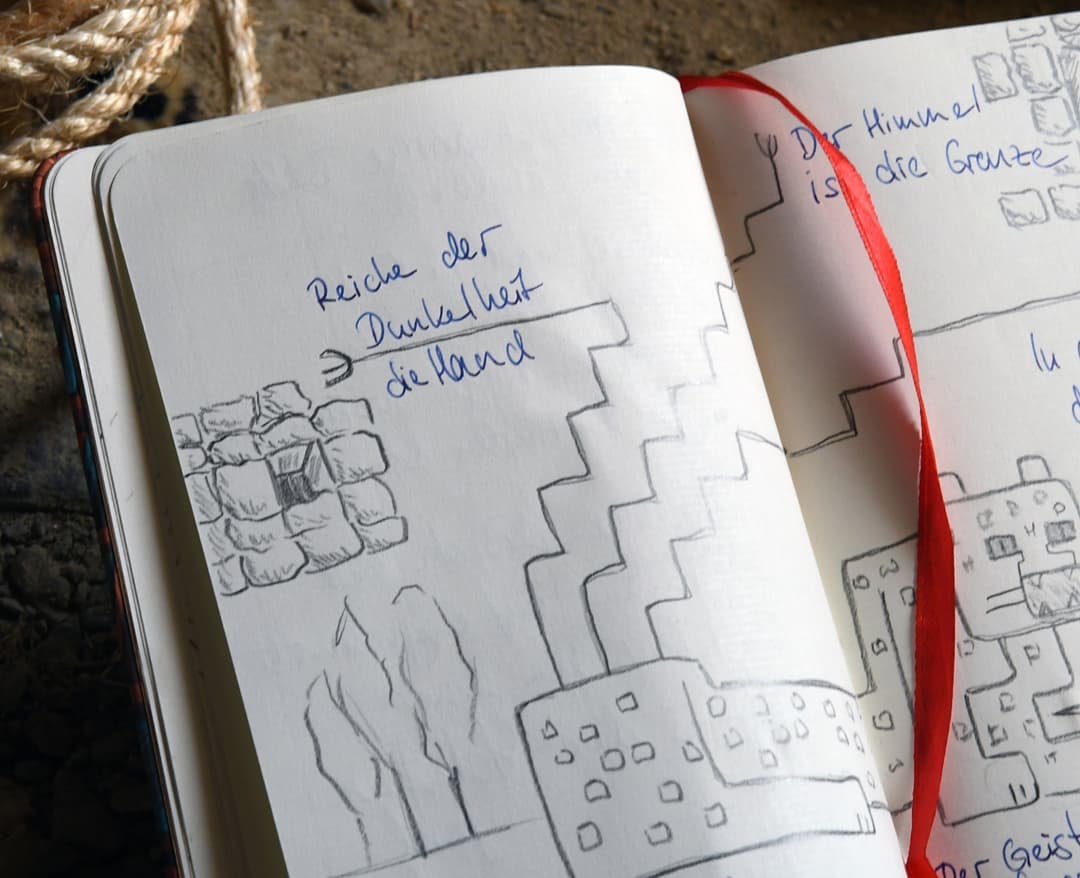 Reiche der
Dunkelheit
die Hand
Der Himmel
ist die Grenze
In
Der Geist